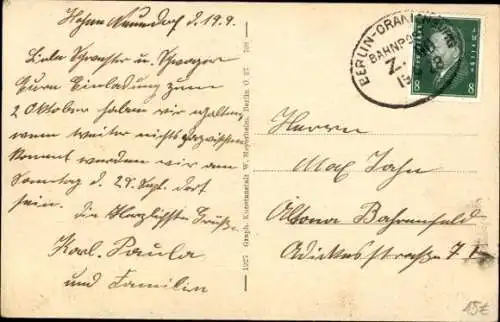 Hohen Neuendorf d. 19.9.
Liebe Schwester u. Schwager
Eure Einladung zum
2 Oktober haben wir erhalten
wenn weiter nichts zwischen
kommt werden wir am
Sonntag d. 29. Sept. dort
sein. die Herzlichsten Grüße
Karl. Paula
und Familien
1927 Graph. Kunstanstalt W. Meyerheim, Berlin O. 27 708
BERLIN-ORANIENBURG
BAHNPOST
Z.
8 8
Herrn
Max Jahn
Altona Bahrenfeld
Adickesstraße 71
15£